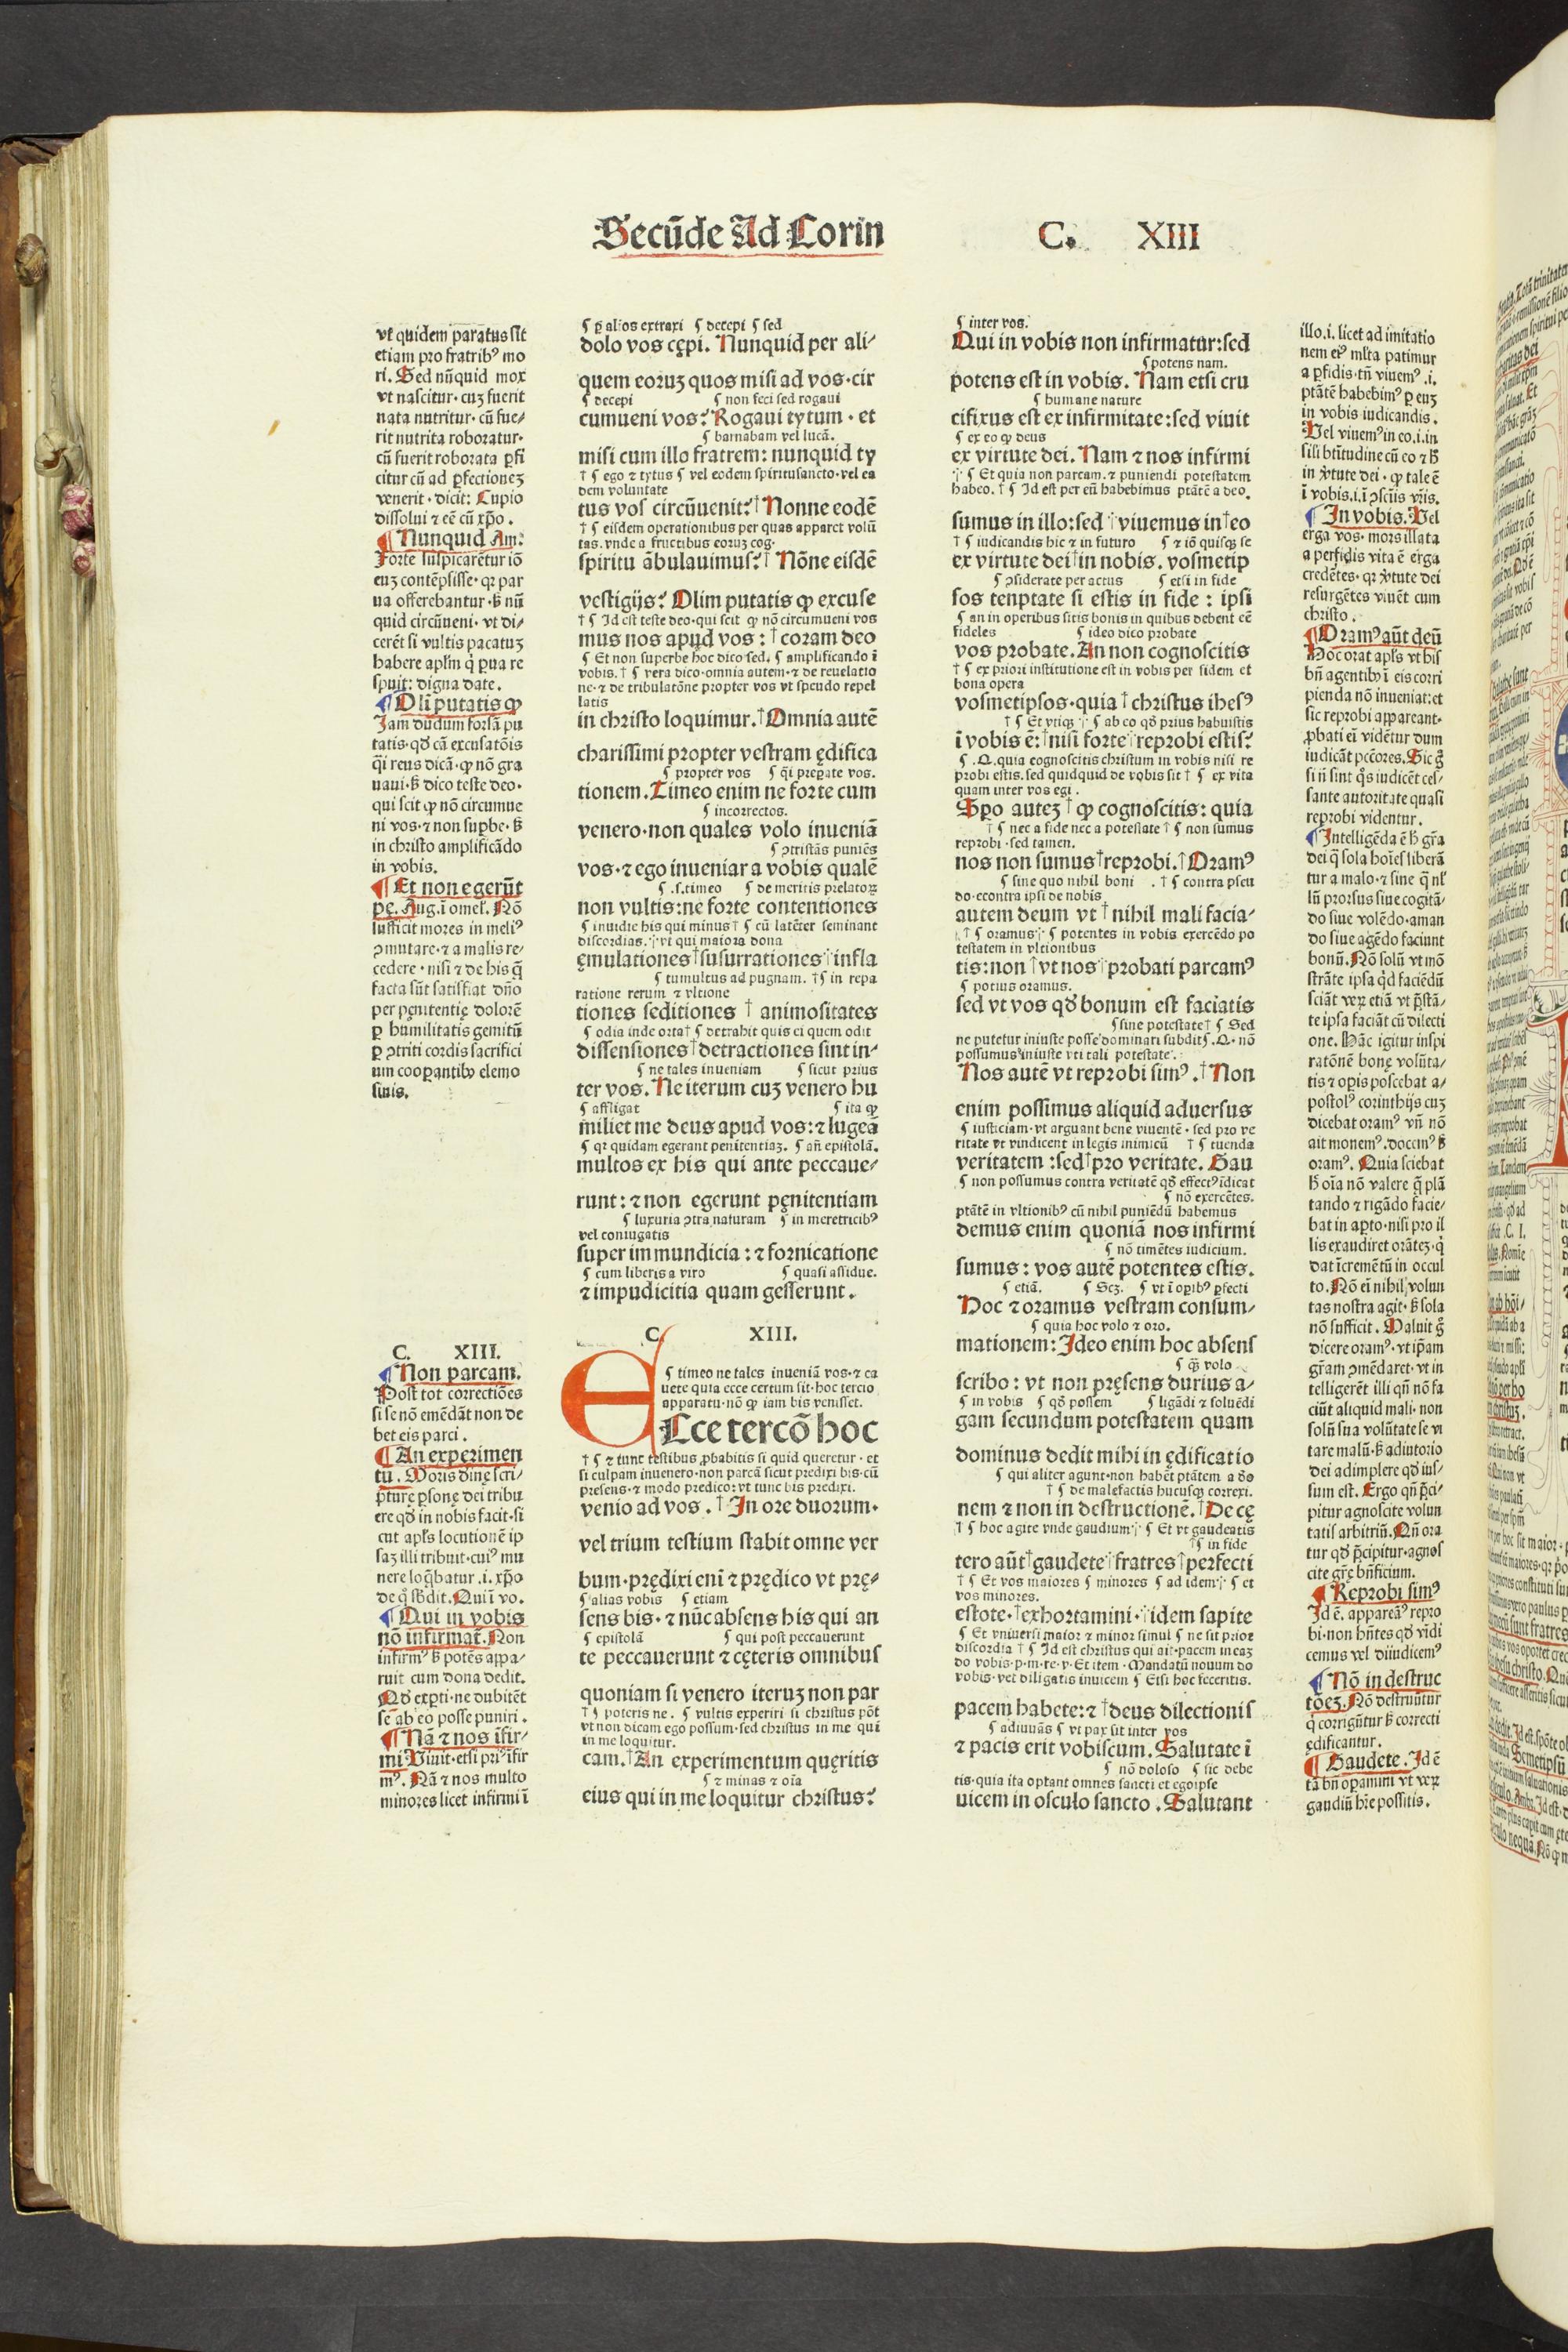 Secūde Ad Corin C. XIII
vt quidem paratus sit
etiam pro fratribꝰ mo
ri. Sed nūquid mox
vt nascitur · cuꝫ fuerit
nata nutritur · cū fue⸗
rit nutrita roboratur·
cū fuerit roborata ꝑfi
citur cū ad ꝑfectioneꝫ
venerit · dicit: Cupio
dissolui ⁊ eē cū xp̄o .
¶ Nunquid Am.
Forte suspicaretur iō
euꝫ contēpsisse · qꝛ par
ua offerebantur · sꝫ nū
quid circūueni · vt di⸗
cerēt si vultis pacatuꝫ
habere apl̄m q̇ ꝑua re
spuit: digna date .
¶ Oli putatis ꝙ
Jam dudum forsā pu
tatis · qđ cā excusatōis
q̄i reus dicā · ꝙ nō gra
uaui · sꝫ dico teste deo ·
qui scit ꝙ nō circumue
ni vos · ⁊ non supbe · sꝫ
in christo amplificādo
in vobis.
¶ Et non egerūt
pę. Aug. ī omel̄. Nō
sufficit mores in meliꝰ
ꝯmutare · ⁊ a malis re⸗
cedere · nisi ⁊ de his q̄
facta sūt satisfiat dn̄o
per pęnitentię dolorē
ꝑ humilitatis gemitū
ꝑ ꝯtriti cordis sacrifici
um cooꝑantibꝰ elemo
sinis.
C. XIII.
¶ Non parcam.
Post tot correctiōes
si se nō emēdāt non de
bet eis parci .
¶ An experimen
tū . Moris dinę scri⸗
pturę ꝑsonę dei tribu
ere qđ in nobis facit · si
cut apl̄s locutionē ip
saꝫ illi tribuit · cuiꝰ mu
nere loq̄batur .i. xp̄o
¶ Qui in vobis
nō infirmat̄. Non
infirmꝰ sꝫ potēs appa⸗
ruit cum dona dedit.
Ad exꝑti · ne dubitēt
se ab eo posse puniri .
¶ Nā ⁊ nos īfir⸗
mꝰ. Nā ⁊ nos multo
minores licet infirmi ī
¶ ꝑ alios extraxi ¶ decepi ¶ sed
dolo vos cępi. Nunquid per ali⸗
quem eoruꝫ quos misi ad vos · cir
¶ decepi ¶ non feci sed rogaui
cumueni vos? Rogaui tytum · et
¶ barnabam vel lucā.
misi cum illo fratrem: nunquid ty
† ¶ ego ⁊ tytus ¶ vel eodem spiritusancto · vel ea
dem voluntate
tus vos circūuenit? † Nonne eodē
† ¶ eisdem operationibus per quas apparet volū
tas. vnde a fructibus eoruꝫ cog·
spiritu ābulauimus? † Nōne eisdē
vestigijs? Olim putatis ꝙ excuse
† ¶ Id est teste deo · qui scit ꝙ nō circumueni vos
mus nos apud vos : † coram deo
¶ Et non superbe hoc dico sed. ¶ amplificando ī
vobis. † ¶ vera dico · omnia autem · ⁊ de reuelatio
ne · ⁊ de tribulatōne propter vos vt spendo repel
latis
in christo loquimur. † Omnia autē
charissimi propter vestram ędifica
¶ propter vos ¶ q̄i preparate vos.
tionem. Timeo enim ne forte cum
¶ incorrectos.
venero · non quales volo inueniā
¶ ꝯtristās puniēs
vos · ⁊ ego inueniar a vobis qualē
¶ .s. timeo ¶ de meritis prelatoꝝ
non vultis: ne forte contentiones
¶ inuidie his qui minus † ¶ cū latēter seminant
discordias. vt qui maiora dona
ęmulationes † susurrationes infla
¶ tumultus ad pugnam. † ¶ in repa
ratione rerum ⁊ vltione
tiones seditiones † animositates
¶ odia inde orta † ¶ detrahit quis ei quem odit
dissensiones † detractiones sint in⸗
¶ ne tales inueniam ¶ sicut prius
ter vos. Ne iterum cuꝫ venero hu
¶ affligat ¶ ita ꝙ
miliet me deus apud vos: ⁊ lugeā
¶ qꝛ quidam egerant penitentiaꝫ. ¶ an̄ epistolā.
multos ex his qui ante peccaue⸗
runt: ⁊ non egerunt pęnitentiam
¶ luxuria ꝯtra naturam ¶ in meretricibꝰ
vel coniugatis
super immundicia : ⁊ fornicatione
¶ cum liberis a viro ¶ quasi assidue.
⁊ impudicitia quam gesserunt .
C. XIII.
¶ timeo ne tales inueniā vos · ⁊ ca
uete quia ecce certum sit · hoc tercio
apparatu · nō ꝙ iam bis venisset.
ECce tercō hoc
† ¶ ⁊ tunc testibus ꝓbabitis si quid queretur · et
si culpam inuenero · non parcā sicut predixi bis · cū
presens · ⁊ modo predico: vt tunc bis predixi.
venio ad vos . † In ore duorum·
vel trium testium stabit omne ver
bum · prędixi eni ⁊ prędico vt prę⸗
¶ alias vobis ¶ etiam
sens bis · ⁊ nūc absens his qui an
¶ epistolā ¶ qui post peccauerunt
te peccauerunt ⁊ cęteris omnibus
quoniam si venero iteruꝫ non par
† ¶ poteris ne . ¶ vultis experiri si christus pōt
vt non dicam ego possum · sed christus in me qui
in me loquitur.
cam. † An experimentum quęritis
¶ ⁊ minas ⁊ oīa
eius qui in me loquitur christus?
¶ inter vos.
Qui in vobis non infirmatur: sed
¶ potens nam.
potens est in vobis. Nam etsi cru
¶ humane nature
cifixus est ex infirmitate: sed viuit
¶ ex eo ꝙ deus
ex virtute dei. Nam ⁊ nos infirmi
¶ Et quia non parcam. ⁊ puniendi potestatem
habeo. † ¶ Id est per eū habebimus ptātē a deo.
sumus in illo: sed viuemus in † eo
† ¶ iudicandis hic ⁊ in futuro ¶ ⁊ iō quisqꝫ se
ex virtute dei † in nobis. vosmetip
¶ ꝯsiderate per actus ¶ etsi in fide
sos temptate si estis in fide : ipsi
¶ an in operibus sitis bonis in quibus debent eē
fideles ¶ ideo dico probate
vos probate. An non cognoscitis
† ¶ ex priori institutione est in vobis per fidem et
bona opera
vosmetipsos · quia † christus ihesꝰ
¶ Et vtiqꝫ ¶ ab eo qđ prius habuistis
ī vobis ē: † nisi forte reprobi estis?
¶ .Q. quia cognoscitis christum in vobis nisi re
probi estis. sed quidquid de vobis sit † ¶ ex vita
quam inter vos egi .
Spo auteꝫ † ꝙ cognoscitis: quia
† ¶ nec a fide nec a potestate † ¶ non sumus
reprobi · sed tamen.
nos non sumus † reprobi. † Oramꝰ
¶ sine quo nihil boni . † ¶ contra pseu
do · econtra ipsi de nobis
autem deum vt † nihil mali facia⸗
† ¶ oramus ¶ potentes in vobis exercēdo po
testatem in vltionibus
tis: non † vt nos probati parcamꝰ
¶ potius oramus.
sed vt vos qđ bonum est faciatis
¶ sine potestate † ¶ Sed
ne putetur iniuste posse dominari subdit ¶ .Q. nō
possumus iniuste vti tali potestate.
Nos autē vt reprobi simꝰ . † Non
enim possimus aliquid aduersus
¶ iusticiam · vt arguant bene viuentē · sed pro ve
ritate vt vindicent in legis inimicū † ¶ tuenda
veritatem : sed † pro veritate. Gau
¶ non possumus contra veritatē qđ effectꝰ īdicat
¶ nō exercētes.
ptātē in vltionibꝰ cū nihil puniēdū habemus
demus enim quoniā nos infirmi
¶ nō timētes iudicium.
sumus: vos autē potentes estis.
¶ etiā. ¶ Scꝫ. ¶ vt ī oꝑibꝰ ꝑfecti
Hoc ⁊ oramus vestram consum⸗
¶ quia hoc volo ⁊ oro.
mationem: Ideo enim hoc absens
¶ q̄ȝ volo
scribo: vt non pręsens durius a⸗
¶ in vobis ¶ qđ possem ¶ ligādi ⁊ soluēdi
gam secundum potestatem quam
dominus dedit mihi in ędificatio
¶ qui aliter agunt · non habēt ptātem a deo
† ¶ de malefactis hucusqꝫ correxi.
nem ⁊ non in destructionē. † De cę
† ¶ hoc agite vnde gaudium ¶ Et vt gaudeatis
† ¶ in fide
tero aūt † gaudete fratres † perfecti
† ¶ Et vos maiores ¶ minores ¶ ad idem ¶ et
vos minores.
estote. † exhortamini · idem sapite
¶ Et vniuersi maior ⁊ minor simul ¶ ne sit prior
discordia † ¶ Id est christus qui ait · pacem meaꝫ
do vobis · p · m · re · v · Et item · Mandatū nouum do
vobis · vet diligatis inuicem ¶ Etsi hoc feceritis.
pacem habete: ⁊ † deus dilectionis
¶ adiuuās ¶ vt pax sit inter vos
⁊ pacis erit vobiscum. Salutate ī
¶ nō doloso ¶ sic debe
tis · quia ita optant omnes sancti et egoipse
uicem in osculo sancto . Salutant
illo .i. licet ad imitatio
nem eiꝰ ml̄ta patimur
a ꝑfidis · tn̄ viuemꝰ .i.
ptātē habebimꝰ ꝑ euꝫ
in vobis iudicandis .
Vel viuemꝰ in eo .i. in
sili btītudine cū eo ⁊ sꝫ
in v̇tute dei · ꝙ tale ē
ī vobis .i. ī ꝯsciīs vr̄is.
¶ In vobis. Vel
erga vos · mors illata
a perfidis vita ē erga
credētes · qꝛ v̇tute dei
resurgētes viuēt cum
christo .
¶ Oramꝰ aūt deū
Hoc orat apl̄s vt his
bn̄ agentibꝰ ī eis corri
pienda nō inueniat: et
sic reprobi appareant·
ꝓbati ei vidētur dum
iudicāt pctōres. Sic g̊
si n̄ sint q̇s iudicēt ces⸗
sante autoritate quasi
reprobi videntur.
¶ Intelligēda ē hꝫ gr̄a
dei q̄ sola hoīes liberā
tur a malo · ⁊ sine q̄ nl̄
lū prorsus siue cogitā⸗
do siue volēdo · aman
do siue agēdo faciunt
bonū. Nō solū vt mō
strāte ipsa q̇d faciēdū
sciāt veꝝ etiā vt p̄stā⸗
te ipsa faciāt cū dilecti
one. Hāc igitur inspi
ratōnē bonę volūta⸗
tis ⁊ oꝑis poscebat a⸗
postolꝰ corinthijs cuꝫ
dicebat oramꝰ vn̄ nō
ait monemꝰ . docemꝰ sꝫ
oramꝰ. Quia sciebat
hꝫ oīa nō valere q̄ plā
tando ⁊ rigādo facie⸗
bat in aꝑto · nisi pro il
lis exaudiret orāteꝫ · q̇
dat īcremētū in occul
to. Nō ei nihil volun
tas nostra agit · sꝫ sola
nō sufficit. Maluit g̊
dicere oramꝰ · vt ip̄am
gr̄am ꝯmēdaret · vt in
telligerēt illi qn̄ nō fa
ciūt aliquid mali · non
solū sua volūtate se vi
tare malū · sꝫ adiutorio
dei adimplere qđ ius⸗
sum est. Ergo qn̄ p̄ci⸗
pitur agnoscite volun
tatis arbitriū. Qn̄ ora
tur qđ p̄cipitur · agnos
cite gr̄ę bn̄ficium.
¶ Reprobi simꝰ
Id ē. appareāꝰ repro
bi · non hn̄tes qđ vīdi
cemus vel diiudicemꝰ
¶ Nō in destruc
tōeꝫ. Nō destruūtur
q̇ corrigūtur sꝫ correcti
ędificantur .
¶ Gaudete. Id ē
tā bn̄ oꝑamini vt veꝝ
gaudiū hr̄e possitis.